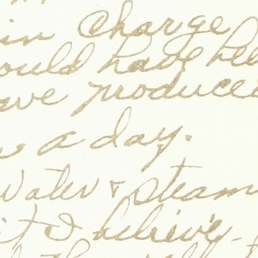 in charge
ould have bee
ave produced
a day.
Water & steam
it I believe